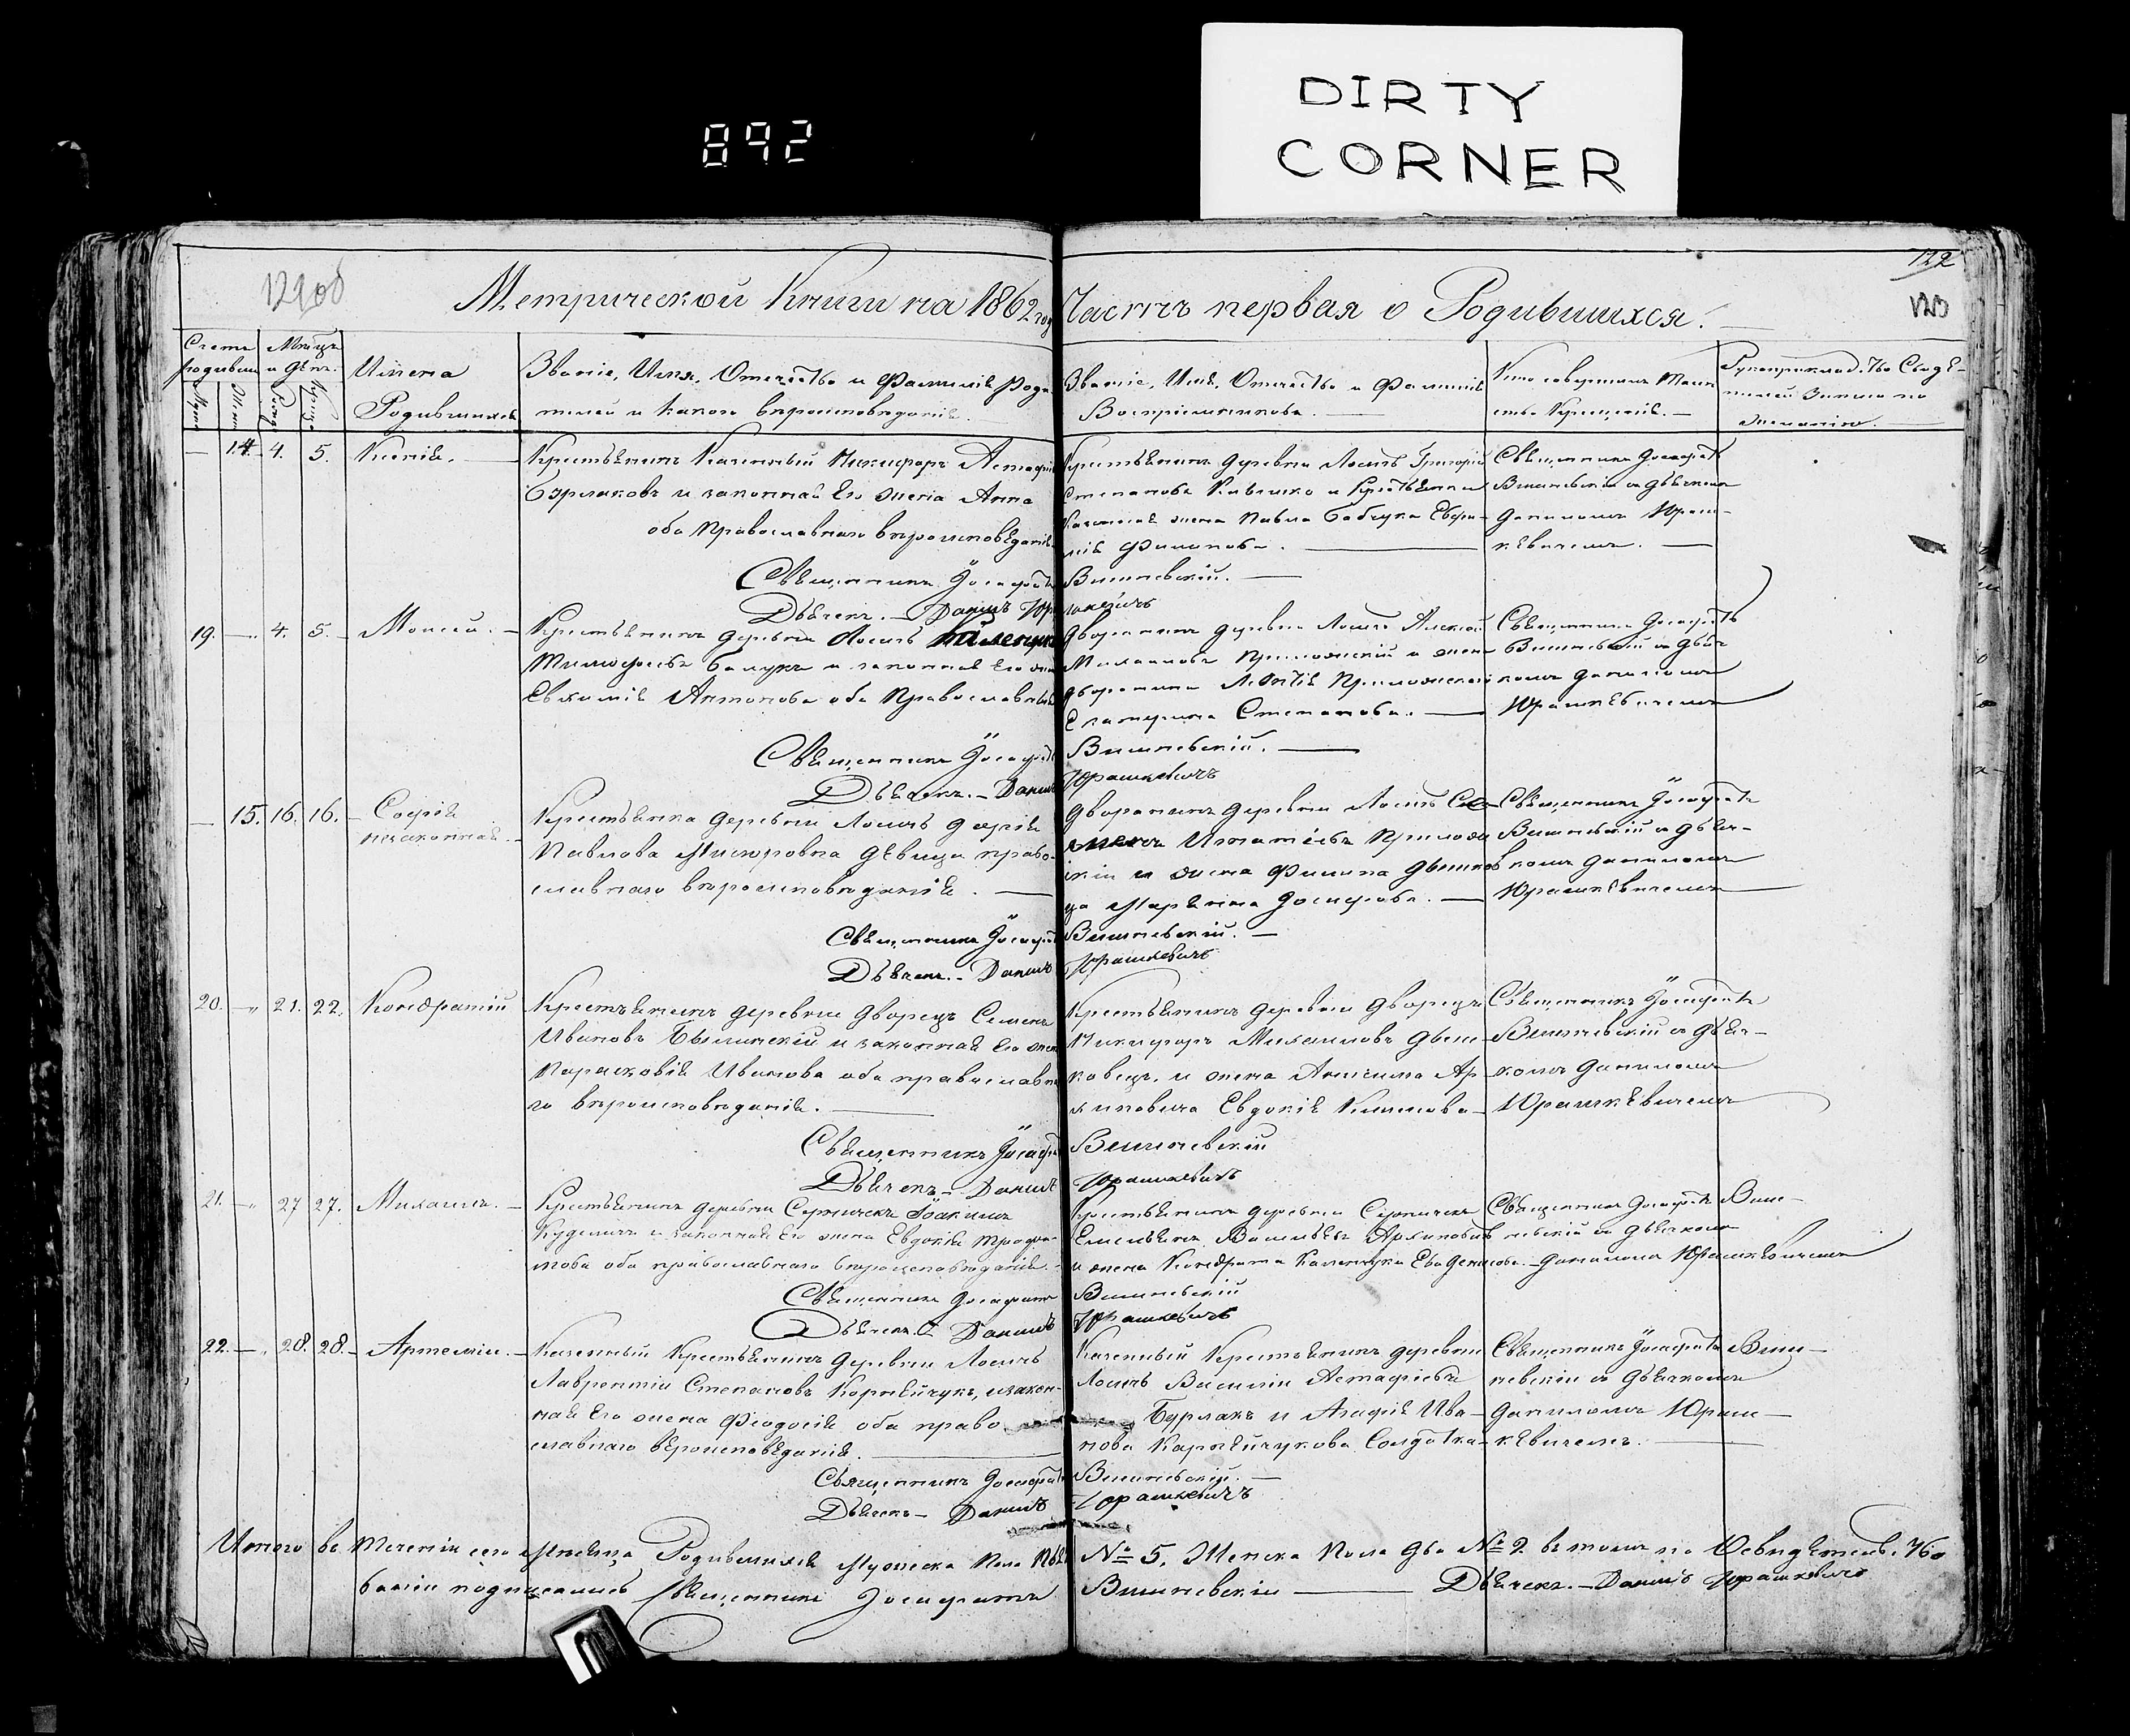 DIRTY
CORNER
892
122
120
Метрической Книги на 1862 год Часть первая о Родившихся.
Счетъ родивш
Мѣсцъ и день.
Имена
Родившихся
Званіе, Имя, Отечество и Фамилія Роди-
телей и какого вѣроисповѣданія.
Званіе, Имя, Отечество и Фамилія
Воспріемниковъ.
Кто совершалъ Таин-
ство Крещенія.
Рукоприкладство Свидѣ-
телей записи по
желанію.
— 14. 4. 5. Ксенія.
Крестьянинъ Казенный Никифоръ Астафіевъ
Бурлаковъ и законная Его жена Анна
оба Православнаго вѣроисповѣданія.
Крестьянинъ деревни Лосичъ Григорій
Степановъ и Крестьянина
Казеннаго жена Павла Бабчука Евфи-
мія Филипова.
Священникъ Іосафатъ
Вишневскій съ дьячкомъ
Даниломъ Юраш-
кевичемъ.
Священникъ Іосафатъ Вишневскій.
Дьячекъ.— Данилъ Юрашкевичъ
19. — 4. 5. Моисей.
Крестьянинъ деревни Лосичъ
Тимофеевъ и законная Его жена
Евхимія Антонова оба Православныя
Дворянинъ деревни Лосичъ Алексей
Михаиловъ Приложскій и жена
дворянина Приложскаго
Екатерина Степанова.
Священникъ Іосафатъ
Вишневскій съ дьяч-
комъ Даниломъ
Юрашкевичемъ
Священникъ Іосафатъ Вишневскій.
Дьячекъ.— Данилъ Юрашкевичъ
— 15. 16. 16. Софія
незаконная.
Крестьянка деревни Лосичъ
Павлова дѣвица право-
славнаго вѣроисповѣданія.
Дворянинъ деревни Лосичъ Се-
менъ Игнатіевъ Прилож-
скій и жена Филипа
Марьяна Іосифова.
Священникъ Іосафатъ
Вишневскій съ дьяч-
комъ Даниломъ
Юрашкевичемъ
Священникъ Іосафатъ Вишневскій.
Дьячекъ.— Данилъ Юрашкевичъ
20. — 21. 22. Кондратій
Крестьянинъ деревни Дворецъ Семенъ
Ивановъ Былинскій и законная Его жена
Парасковія Иванова оба православна-
го вѣроисповѣданія.
Крестьянинъ деревни Дворецъ
Никифоръ Михаиловъ Дыш-
ковецъ и жена Ар-
хиповича Евдокія Климова
Священникъ Іосафатъ
Вишневскій съ дьяч-
комъ Даниломъ
Юрашкевичемъ
Священникъ Іосафатъ Вишневскій
Дьячекъ.— Данилъ Юрашкевичъ
21. — 27 27. Михаилъ.
Крестьянинъ деревни Іоакимъ
и законная Его жена Евдокія
оба православнаго вѣроисповѣданія.
Крестьянинъ деревни
Емельянъ Васильевъ Архиповичъ
и жена Кондрата Ева Денисова.
Священникъ Іосафатъ Виш-
невскій съ дьячкомъ
Даниломъ Юрашкевичемъ
Священникъ Іосафатъ Вишневскій
Дьячекъ.— Данилъ Юрашкевичъ
22. — 28. 28. Артемій.
Казенный Крестьянинъ деревни Лосичъ
Лаврентій Степановъ Корнейчукъ, и закон-
ная Его жена Феодосія оба право-
славнаго вѣроисповѣданія.
Казенный Крестьянинъ деревни
Лосичъ Василій Астафіевъ
Бурлакъ и Агафія Ива-
нова Карнейчукова Солдатка
Священникъ Іосафатъ Виш-
невскій съ дьячкомъ
Даниломъ Юраш-
кевичемъ.
Священникъ Іосафатъ Вишневскій.
Дьячекъ— Данилъ Юрашкевичъ
Итого въ теченіи сего Мѣсяца Родившихся Мужеска Пола № 5. Женска Пола два № 2 въ томъ по Освидѣтельство-
ваніи подписались Священникъ Іосафатъ Вишневскій Дьячекъ.— Данилъ Юрашкевичъ